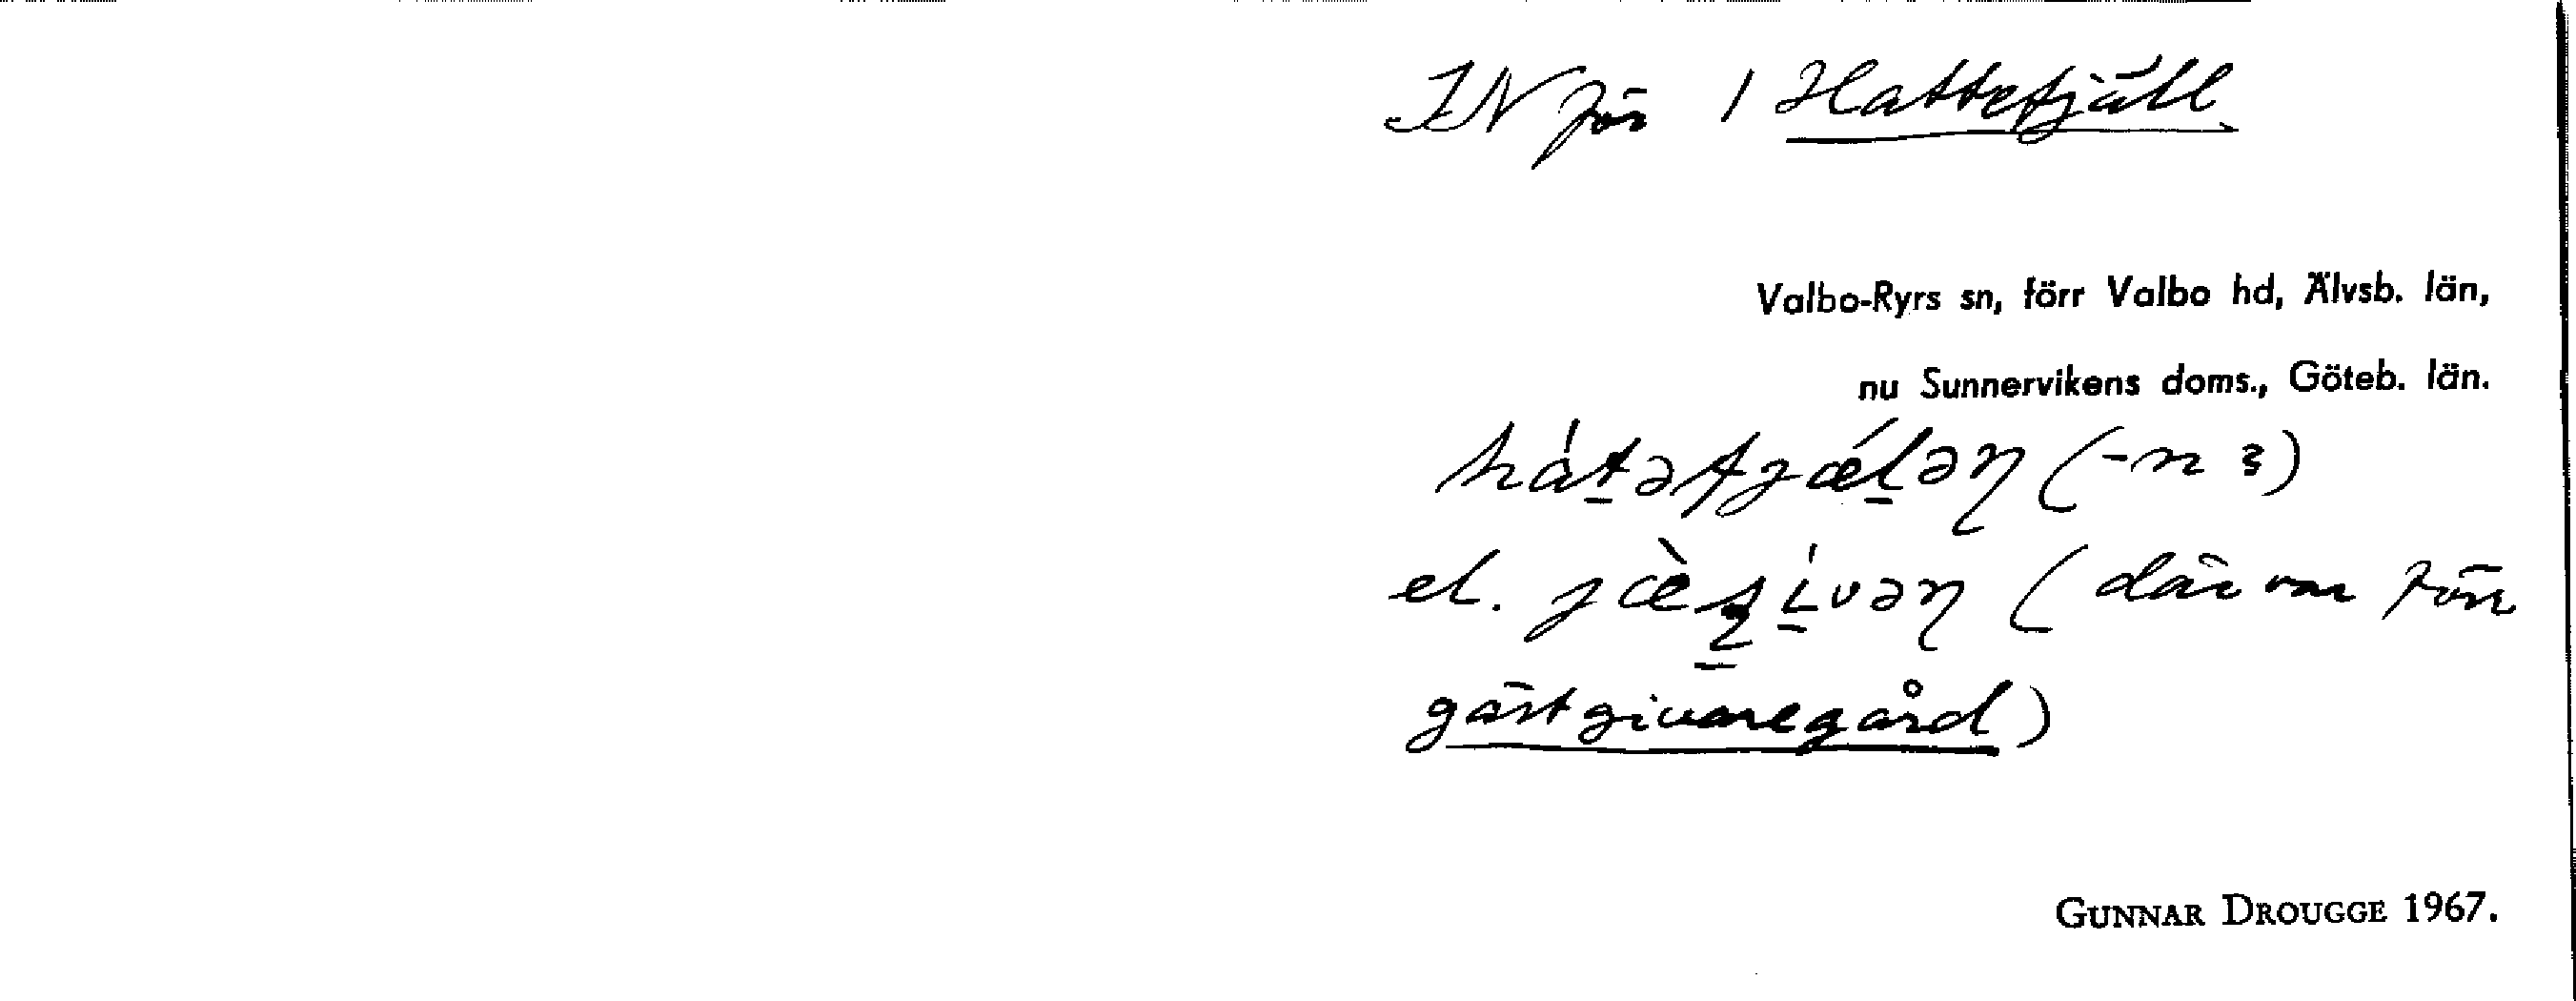 IN för 1 Hattefjäll
Valbo-Ryrs sn, förr Valbo hd, Älvsb. län,
nu Sunnervikens doms., Göteb. län.
hàtəfjǽləɳ (-n ɜ)
el. jæ̀ʂívəɳ (där var förr
gästgivaregård)
GUNNAR DROUGGE 1967.